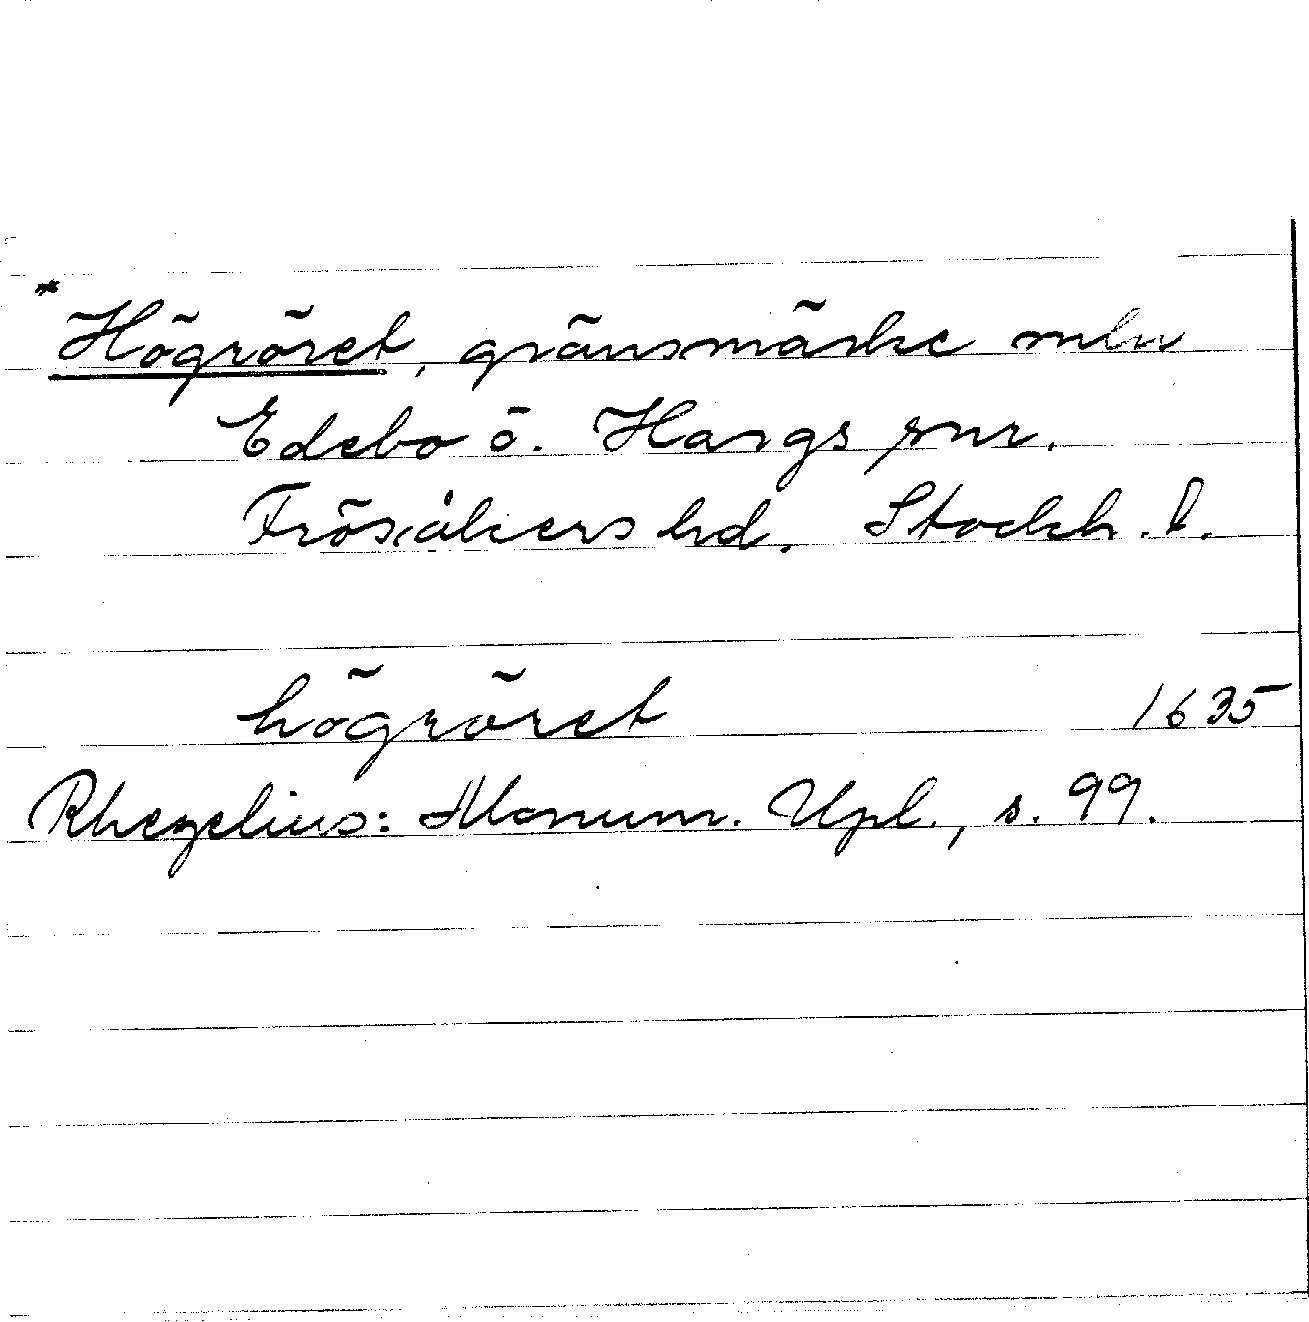 *Högröret, gränsmärke mln
Edebo o. Hargs snr.
Frösåkers hd. Stockh. l.
högröret 1635
Rhezelius: Monum. Upl., s. 99.